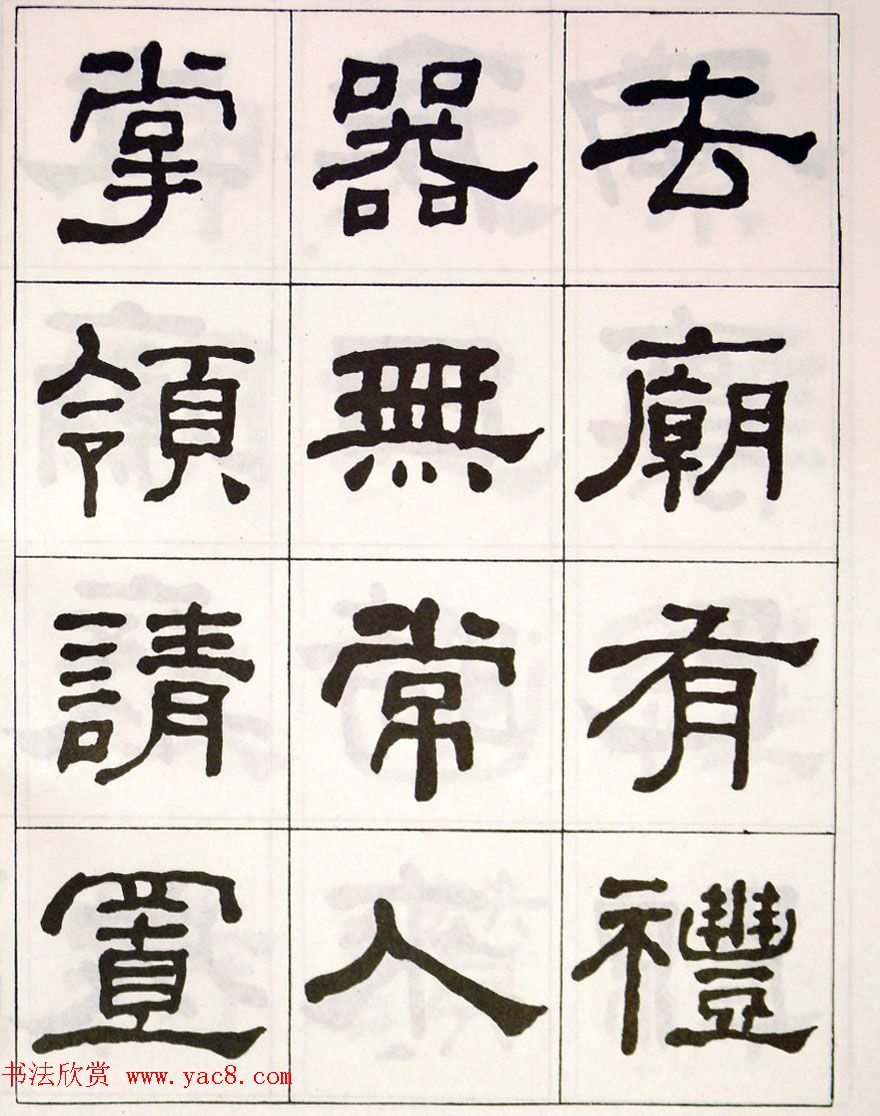 去廟有禮
器無常人
掌領請置
书法欣赏 www.yac8.com